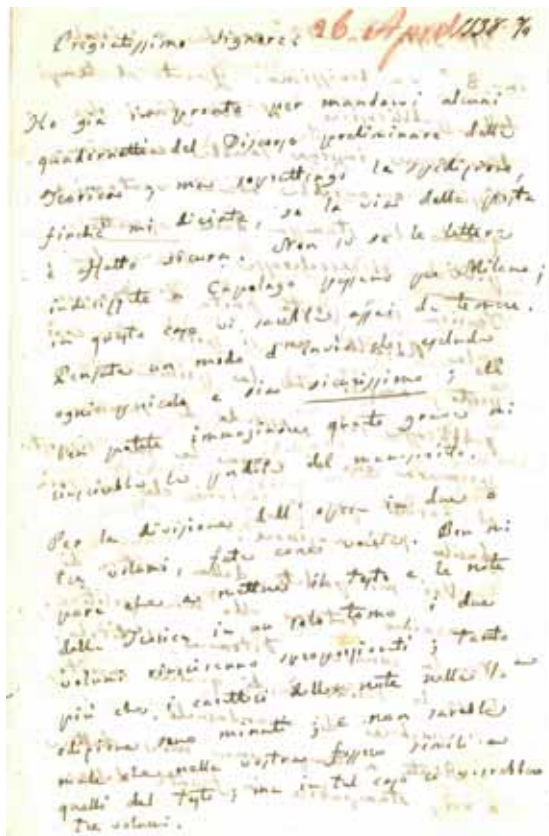 Pregiatissimo Signore:
26 April 1838
Ho già in pronto per mandarvi alcuni
quadernetti del Discorso preliminare della
Teorica; ma soprattengo la spedizione,
finchè mi diciate, se la via della posta
è affatto sicura. Non so se le lettere
indirizzate a Capolago passano per Milano;
in questo caso vi sarebbe assai da temere.
Pensate un modo d'invio che escluda
ogni pericolo e sia sicurissimo; chè
ben potete immaginare quanto grave mi
riuscirebbe la perdita del manoscritto.
Per la divisione dell'opera in due o
tre volumi, fate come volete. Ben mi
pare che a mettere il testo e le note
della Teorica in un solo tomo, i due
volumi riuscirebbero sproporzionati; tanto
più che i caratteri delle note nella 1.ª
edizione sono minuti; e non sarebbe
male che nella vostra fossero simili a
quelli del testo; ma in tal caso ci vorrebbero
tre volumi.